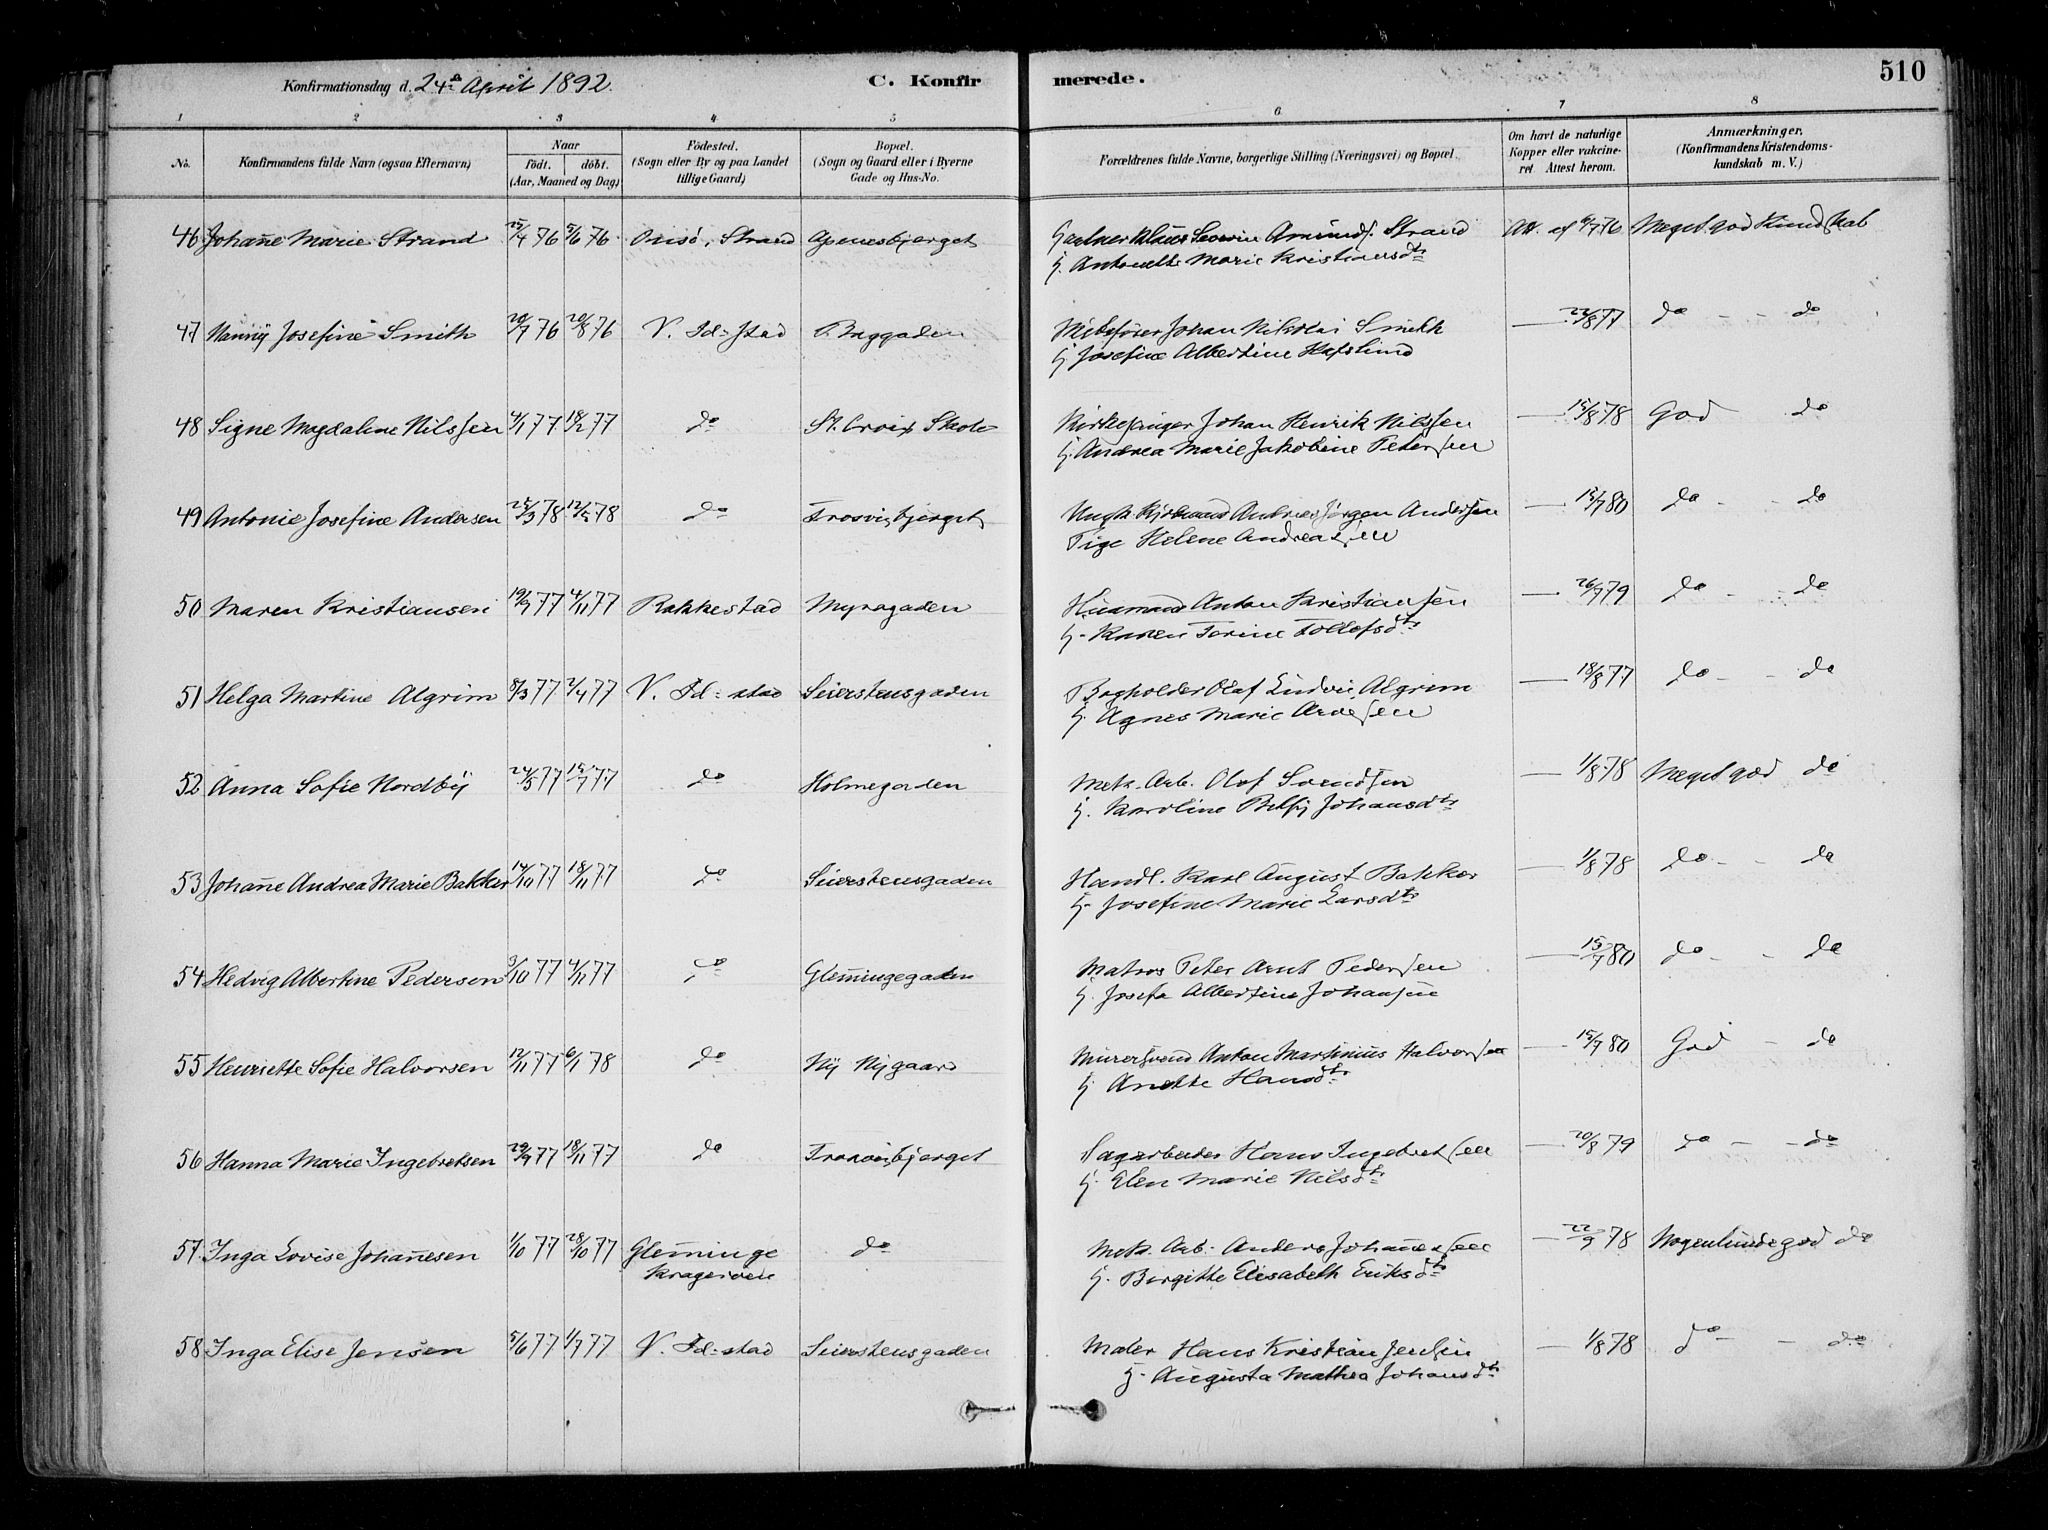 Konfirmationsdag d. 24de April 1892.
C. Konfirmerede.
510
1 2 3 4 5 6 7 8
No. Konfirmandens fulde Navn (ogsaa Efternavn) Naar født. døbt. (Aar, Maaned og Dag) Fødested. (Sogn eller By og paa Landet tillige Gaard) Bopæl. (Sogn og Gaard eller i Byerne Gade og Hus-No. Forældrenes fulde Navne, borgerlige Stilling (Næringsvei) og Bopæl. Om havt de naturlige Kopper eller vakcineret. Attest herom. Anmærkninger. (Konfirmandens Kristendomskundskab m. V.)
46 Johanne Marie Strand 25/4 76 5/6 76 Onsø, Strand Apenesbjerget Gartner Klaus Severin Amunds. Strand Att. af 6/7 76 Meget god Kundskab
H. Antonette Marie Kristiansdtr
47 Nanny Josefine Smith 20/7 76 20/8 76 V. Fd-stad Baggaden Johan Nikolai Smith — 22/8 77 do - - do
H. Josefine Albertine Hafslund
48 Signe Magdalene Nilssen 4/1 77 18/2 77 do St. Croix Skole Kirkesanger Johan Henrik Nilssen — 15/8 78 God do
H. Andrea Marie Jakobine Petersen
49 Antonie Josefine Andersen 25/3 78 12/5 78 do Trosvisbjerget Ungk. Andreas Jørgen Andersen — 15/7 80 do - - do
Pige Helene Andreassen
50 Maren Kristiansen 19/9 77 4/11 77 Rakkestad Myragaden Anton Kristiansen — 26/7 79 do - - do
H. Karen Torine Tollefsdtr
51 Helga Martine Algrim 8/3 77 2/4 77 V. Fd-stad Seierstensgaden Bogholder Olaf Ludvig Algrim — 18/8 77 do - - do
H. Agnes Marie Arvesen
52 Anna Sofie Nordby 24/5 77 15/7 77 do Holmegaden Mek. Arb. Olof Svendsen — 1/8 78 Meget god do
H. Karoline Betsy Johansdtr
53 Johanne Andrea Marie Bakker 14/10 77 18/11 77 do Seierstensgaden Handl. Karl August Bakker — 1/8 78 do - - do
H. Josefine Marie Larsdtr
54 Hedvig Albertine Pedersen 3/10 77 4/11 77 do Glemmingegaden Matros Peter Arnt Pedersen — 15/7 80 do - - do
H. Josefa Albertine Johansen
55 Henriette Sofie Halvorsen 12/11 77 6/1 78 do Ny Nygaard Murersvend Anton Martinius Halvorsen — 15/7 80 God - do
H. Anette Hansdtr
56 Hanna Marie Ingebretsen 29/9 77 18/11 77 do Trosvisbjerget Sagarbeider Hans Ingebretsen — 20/8 79 do - - do
H. Elen Marie Nilsdtr
57 Inga Lovise Johannesen 1/10 77 28/10 77 Glemminge do Mek. Arb. Anders Johannessen — 22/9 78 Nogenlunde god do
Kragerøen H. Birgitte Elisabeth Eriksdtr
58 Inga Elise Jensen 5/6 77 1/7 77 V. Fd-stad Seierstensgaden Maler Hans Kristian Jensen — 1/8 78 do - - do
H. Augusta Mathea Johansdtr